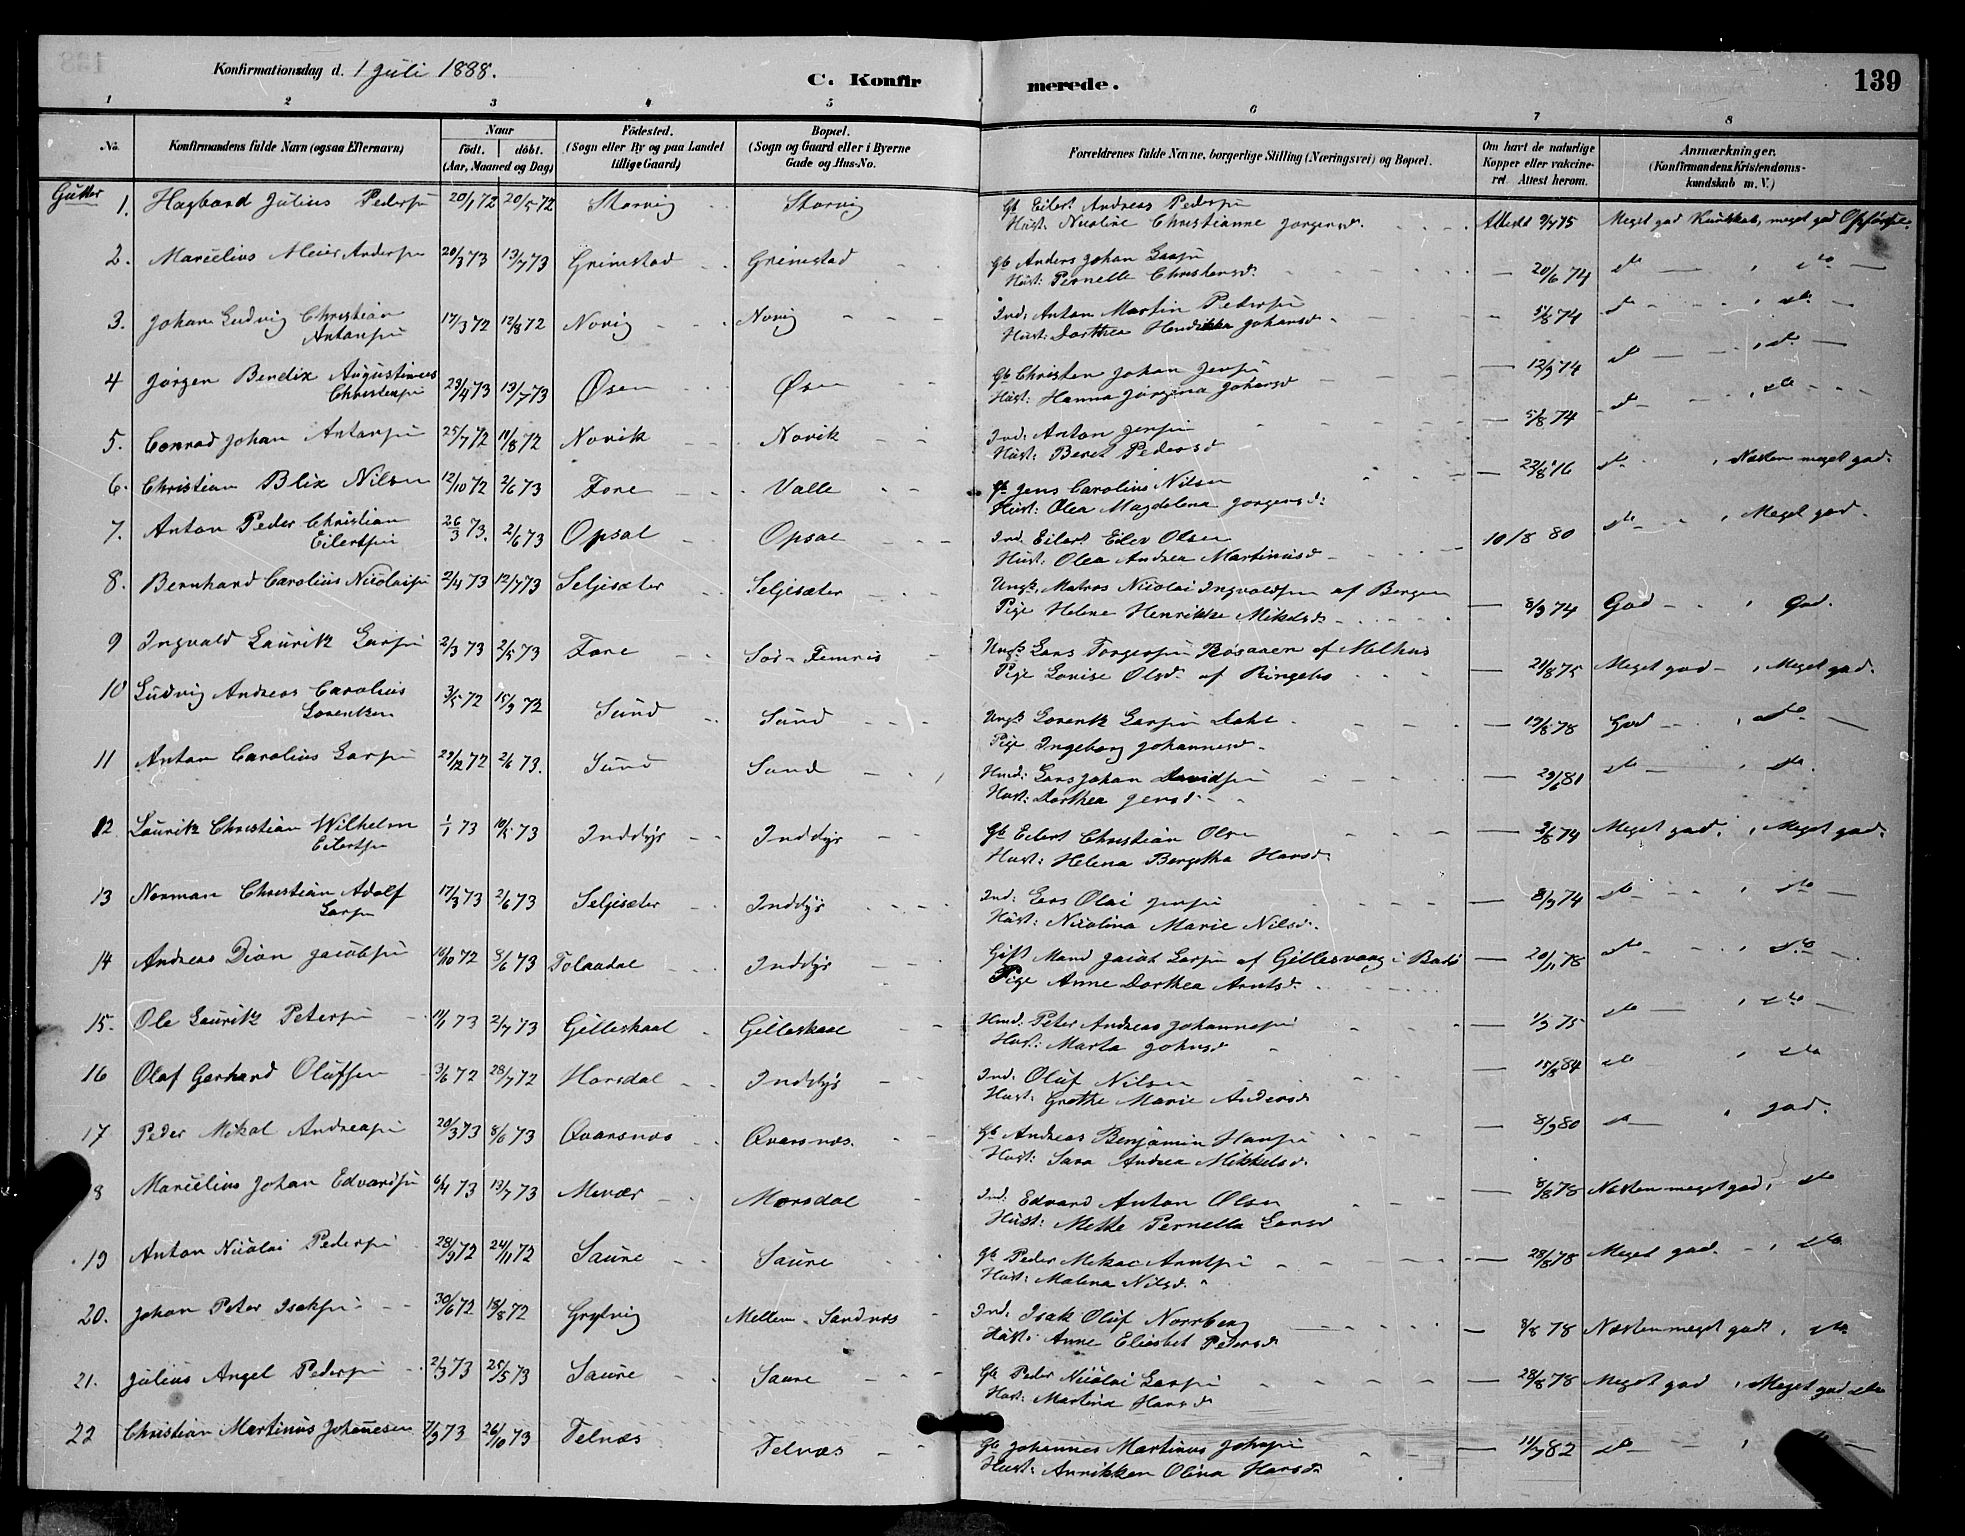 Konfirmationsdag d. 1 Juli 1888.
C. Konfirmerede.
139
1 2 3 4 5 6 7 8
No.
Konfirmandens fulde Navn (ogsaa Efternavn)
Naar
födt. döbt.
(Aar, Maaned og Dag)
Födested.
(Sogn eller By og paa Landet
tillige Gaard)
Bopæl.
(Sogn og Gaard eller i Byerne
Gade og Hus-No.
Forældrenes fulde Navne, borgerlige Stilling (Næringsvei) og Bopæl.
Om havt de naturlige
Kopper eller vakcine-
ret. Attest herom.
Anmærkninger.
(Konfirmandens Kristendoms-
kundskab m. V.)
Gutter
1. Hagbard Julius Pedersen 20/1 72 20/5 72 Storvig Storvig Gb Eilert Andreas Pedersen Attest 9/7 75 Meget god Kundskab, meget god Opførsel.
Hust: Nicoline Christianne Jørgensd.
2. Marcelius Meier Andersen 20/3 73 13/7 73 Grimstad Grimstad Gb Anders Johan Larsen 20/6 74 do do
Hust: Pernelle Christensd.
3. Johan Ludvig Christian Antonsen 17/3 72 12/8 72 Novig Novig Ind: Anton Martin Pedersen 5/8 74 do do
Hust: Dorthea Hendrikka Johansd.
4 Jørgen Bendix Augustinus Christensen 23/4 73 13/7 73 Øsen Øsen Gb Christen Johan Jensen 12/9 74 do do
Hust: Hanna Jørgina Johansd
5. Conrad Johan Antonsen 25/7 72 10/8 72 Novik Novik Ind: Anton Jensen 5/8 74 do do
Hust: Beret Pedersd
6. Christian Blix Nilsen 12/10 72 2/6 73 Fore Valle Gb Jens Carolius Nilsen 22/8 76 do, Næsten meget god.
Hust: Olea Magdalena Jørgensd:
7. Anton Peder Christian Eilertsen 26/3 73. 2/6 73 Opsal Opsal Ind. Eilert Eilev Olsen 10/8 80 do, Meget god.
Hust: Olea Andrea Martinusd
8. Bernhard Carolius Nicolaisen 2/4 73 12/7 73 Seljesæter Seljesæter Ungk. Matros Nicolai Ingvaldsen af Bergen 8/9 74 God, God.
Pige Helene Henrikke Mikelsd
9 Ingvald Laurik Larsen 2/3 73 2/5 73 Fore Sør-Femris Ungk. Lars Torgersen Røsaaen af Melhus 21/8 75 Meget god, Meget god.
Pige Lovise Olsd. af Ringebo
10 Ludvig Andreas Carolius Lorentzen 3/5 72 15/9 72 Sund Sund Ungk Lorentz Larsen Dahl 19/8 78 God, do
Pige Ingeborg Johannesd
11 Anton Carolius Larsen 29/12 72 2/6 73. Sund Sund Hmd: Lars Johan Davidsen 29/6 81 do do
Hust: Dorthea Jensd
12. Lauritz Christian Wilhelm Eilertsen 1/1 73 10/5 73 Inddyr Inddyr Gb Eilert Christian Olsen 2/8 74 Meget god, Meget god.
Hust: Helena Bergitha Hansd
13 Norman Christian Adolf Larsen 17/3 73 2/6 73 Seljesæter Inddyr Ind: Lars Olai Jensen 8/9 74 do do
Hust: Nicolina Marie Nilsd.
14 Andreas Dion Jacobsen 10/10 72 8/6 73 Tolaadal Inddyr Gift Mand Jacob Larsen af Gillesvaag i Bodø 20/11 78 do do
Pige Anne Dorthea Arntsd.
15. Ole Lauritz Petersen 11/1 73 2/7 73 Gilleskaal Gilleskaal Hmd: Peter Andreas Johannesen 1/9 75 do do
Hust: Marta Johnsd
16 Olaf Gerhard Olufsen 3/6 72 28/7 72 Horsdal Inddyr Ind: Oluf Nilsen 15/8 84 do do
Hust: Grethe Marie Andersd
17 Peder Mikal Andreasen 20/3 73 8/6 73 Qvarsnæs Qvarsnæs. Gb Andreas Benjamin Hansen 8/9 80 do, god.
Hust: Sara Andrea Mikkelsd.
8 Marcelius Johan Edvardsen 6/4 73 13/7 73 Mevær Morsdal Ind. Edvard Anton Olsen 8/8 78 Næsten meget god, do
Hust: Mette Pernella Larsd
19 Anton Nicolai Pedersen 28/9 72 24/11 72 Saure Saure Gb Peder Mekal Arntsen 28/8 78 Meget god., do
Hust: Malena Nilsd.
20. Johan Peter Isaksen 30/6 72 18/8 72 Grytvig Mellem-Sandnæs Ind: Isak Oluf Norrberg 8/8 78 Næsten meget god, do
Hust: Anne Eliesbet Pedersd
21. Julius Angel Pedersen 2/3 73 25/5 73 Saure Saure Gb Peder Nicolai Larsen 28/8 78 Meget god, Meget god do
Hust: Martina Hansd
22 Christian Martinus Johannesen 7/9 73 26/10 73 Telnæs Telnæs Gb Johannes Martinus Johnsen 11/7 82 do do
Hust: Annikken Olina Hansd